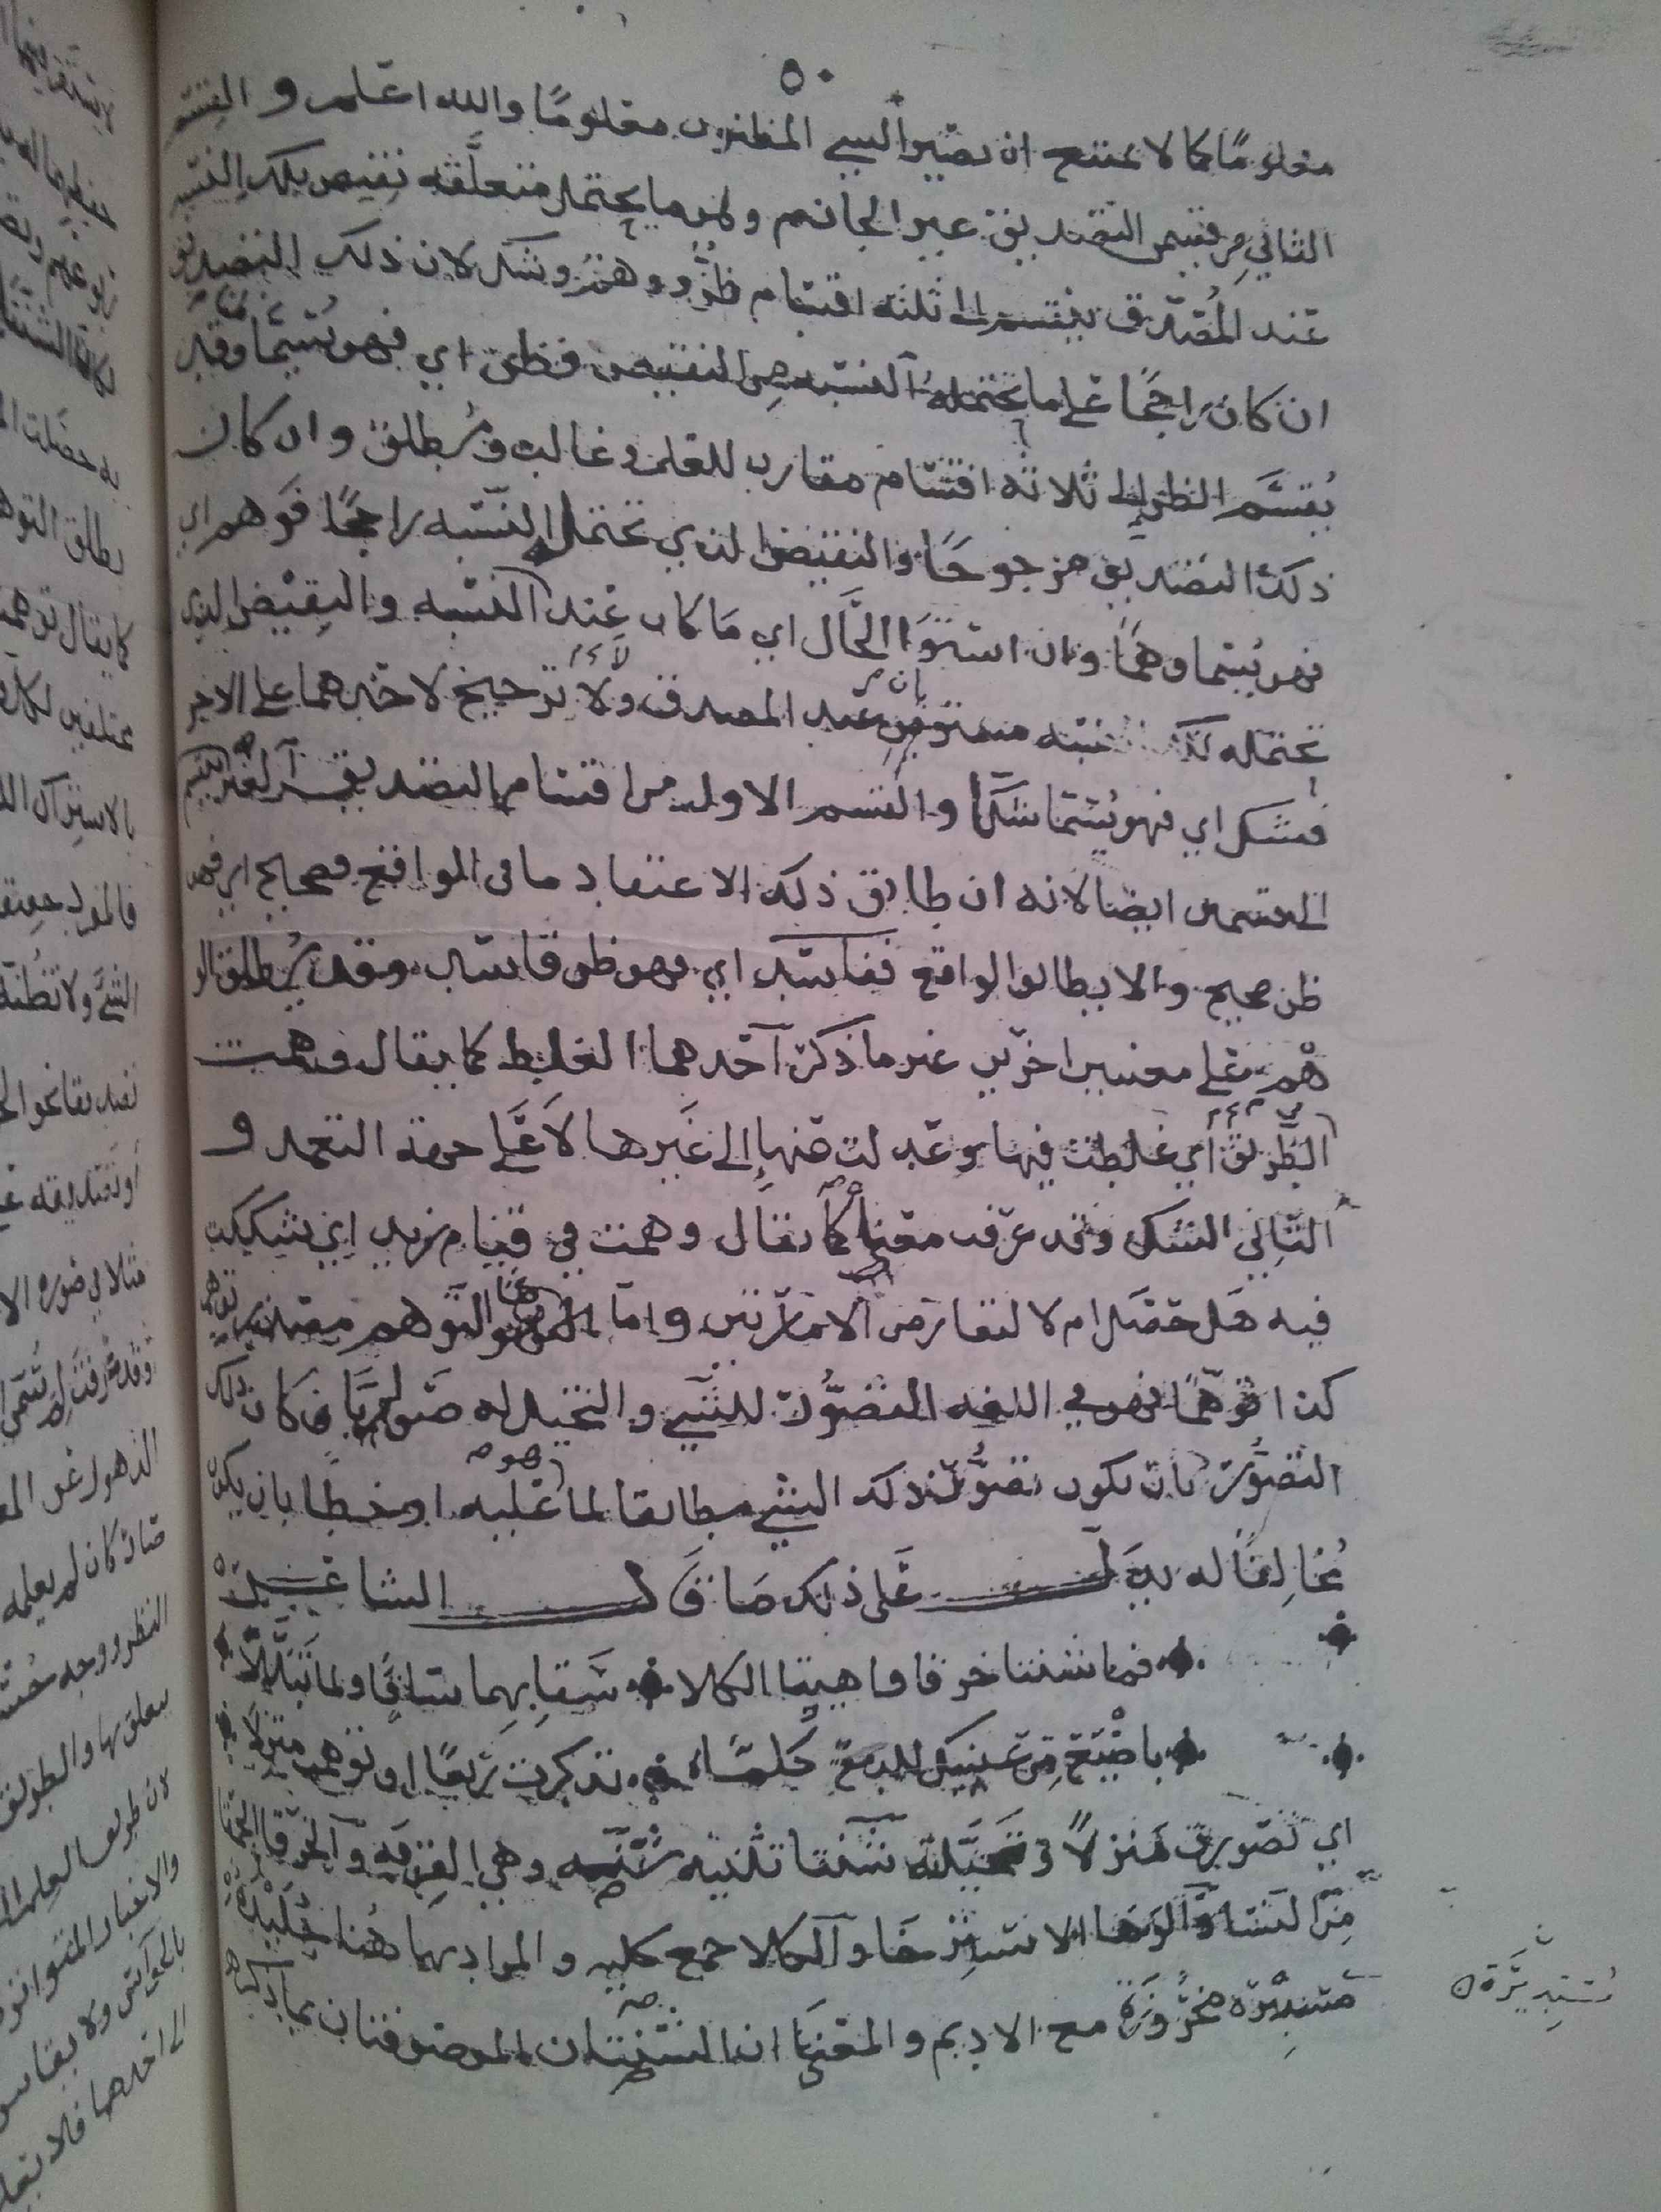 ٥٠
معلومًا كما لا يمتنع ان يصير الشيء المظنون معلومًا والله اعلم والقسم
الثاني من قسمي التصديق غير الجازم وهو ما يحتمل متعلقه نقيض تلك النسبه
عند المُصدق ينقسم الى ثلثه اقسام ظن ووهم وشك لان ذلك التصديق
ان كان راجحًا على ما تحتمله النسبه من النقيض فظن اي فهو يُسمّا ظنّا وقد
يُقسَّم الظن إلى ثلاثه اقسام مقارب للعلم وغالب ومُطلق وان كان
ذلك التصديق مرجوحًا والنقيض الذي تحتمل النسبه راجحًا فوهم اي
فهو يُسمّا وهمًا وان استوا الحال اي ما كان عند النسبه والنقيض الذي
تحتمله تلك النسبه مستويان عند المصدق ولا ترجيح لاحدهما على الاخر
فشك اي فهو يُسمّا شكًّا والقسم الاول من اقسام التصديق الغير ينقسم
الى قسمين ايضًا لانه ان طابق ذلك الاعتقاد ما في الواقع فصحيح اي فهو
ظن صحيح والا يطابق الواقع ففاسد اي فهو ظن فاسد وقد يُطلق الو
هم على معنيين اخرين غير ما ذكر احدهما الغلط كما يقال وهمت
في الطريق أي غلطت فيها وعدلت عنها إلى غيرها لا على جهة التعمد و
الثاني الشك وقد عرفت معناه كما يقال وهمت في قيام زيد اي شككت
فيه هل حصل ام لا لتعارض الامارتين واما التوهم مصدر توهم
كذا توهّمًا فهو في اللغه التصوُّر للشيء والتخيل له صوابًا كان ذلك
التصوُّر بان يكون تصوُّر ذلك الشيء مطابقا لما هو عليه او خطًا بان يكون
مُخالفًا له يدل على ذلك ما قال الشاعر
فما شنتا خرقا واهيتا الكلا سقا بهما ساقٍ ولما تبلّلا
باضيَع من عينيك للدمع كلما تذكرت ربعًا او توهمت منزلًا
اي تصورت منزلًا وتخيلته شنتا تثنيه شنّه وهي القربه والخرقا الحمقا
من النسا والوها الاسترخا والكلا جمع كليه والمراد بها هُنا جُليدة
مستديرة مخرُوزة مع الاديم والمعنى ان الشنتان الموصوفتان بما ذكر
مُستدِيرَة ن